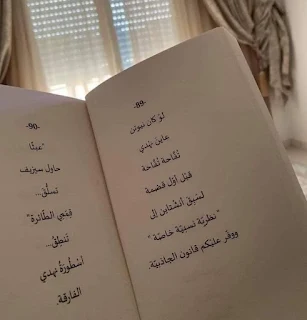 -89-
لَوْ كان نيوتن
عاين نهدي
تفّاحة تفّاحة
قبْل أوّل قضمة
لسبق أنشتاين إلى
"نظريّة نسبيّة خاصّة"
ووفّر عليكم قانون الجاذبيّة.
-90-
"عبثًا
حاول سيزيف
تسلّق...
قِممِي الطّائرة"
تنطق...
أسطورة نهدي
الفارقة.